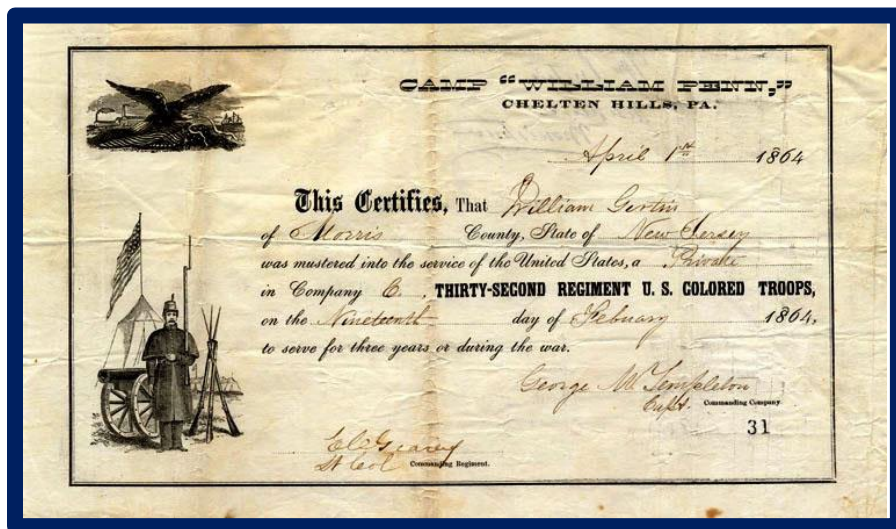 CAMP "WILLIAM PENN,"
CHELTEN HILLS, PA.
April 1st 1864
This Certifies, That William Gertin
of Morris County, State of New Jersey
was mustered into the service of the United States, a Private
in Company , THIRTY-SECOND REGIMENT U. S. COLORED TROOPS,
on the Nineteenth day of Febuary 1864,
to serve for three years or during the war.
George M Templeton
Capt. Commanding Company
31
Lt Col Commanding Regiment.